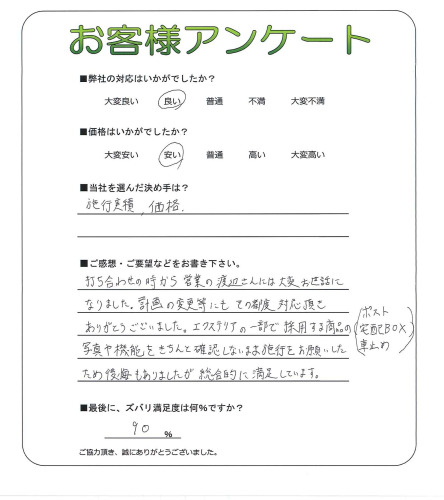 お客様アンケート
■弊社の対応はいかがでしたか？
大変良い 良い 普通 不満 大変不満
■価格はいかがでしたか？
大変安い 安い 普通 高い 大変高い
■当社を選んだ決め手は？
施行実積、価格.
■ご感想・ご要望などをお書き下さい。
打ち合わせの時から営業の渡辺さんには大変お世話に
なりました。計画の変更等にもその都度対応頂き
ありがとうございました。エクステリアの一部で採用する商品の(ポスト 宅配BOX 車止め)
写真や機能をきちんと確認しないまま施行をお願いした
ため後悔もありましたが総合的に満足しています。
■最後に、ズバリ満足度は何%ですか？
90 %
ご協力頂き、誠にありがとうございました。